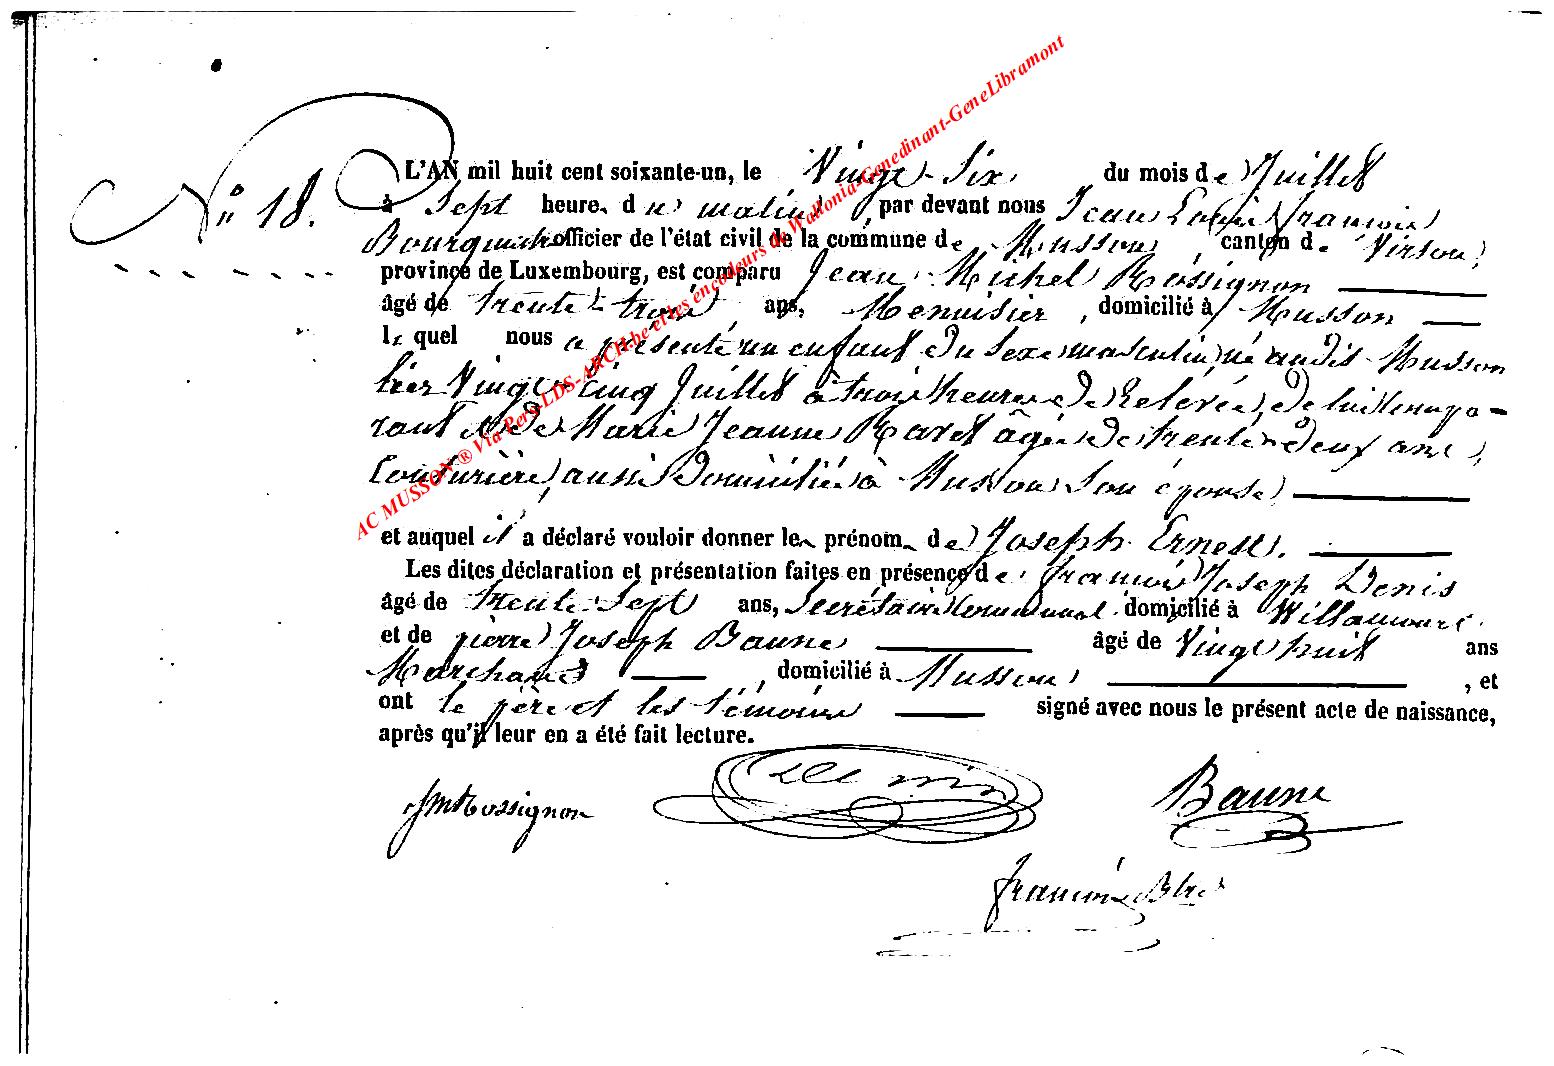 AC MUSSON ® Via Pers-LDS-ARCH.be et les encodeurs de Wallonia-Genedinant-GeneLibramont
N° 18.
L'AN mil huit cent soixante-un, le Vingt-Six du mois de Juillet
à Sept heure du matin, par devant nous Jean Louis françois
officier de l'état civil de la commune de Musson, canton de Virton,
province de Luxembourg, est comparu Jean Michel Rossignon
âgé de trente-trois ans, Menuisier, domicilié à Musson
le quel nous a présenté un enfant du sexe masculin, né audit Musson
hier Vingt-Cinq Juillet à trois heures de Relevée, de lui Compa-
rant et de Marie Jeanne âgée de trente-deux ans,
Couturière, aussi domiciliée à Musson Son épouse,
et auquel il a déclaré vouloir donner les prénoms de Joseph Ernest.
Les dites déclaration et présentation faites en présence de françois Joseph Denis
âgé de trente Sept ans, Secrétaire Communal domicilié à Willancourt
et de pierre Joseph Baune âgé de Vingt huit ans
Marchand, domicilié à Musson, et
ont le père et les témoins signé avec nous le présent acte de naissance,
après qu'il leur en a été fait lecture.
JMRossignon Denis Baune
françois